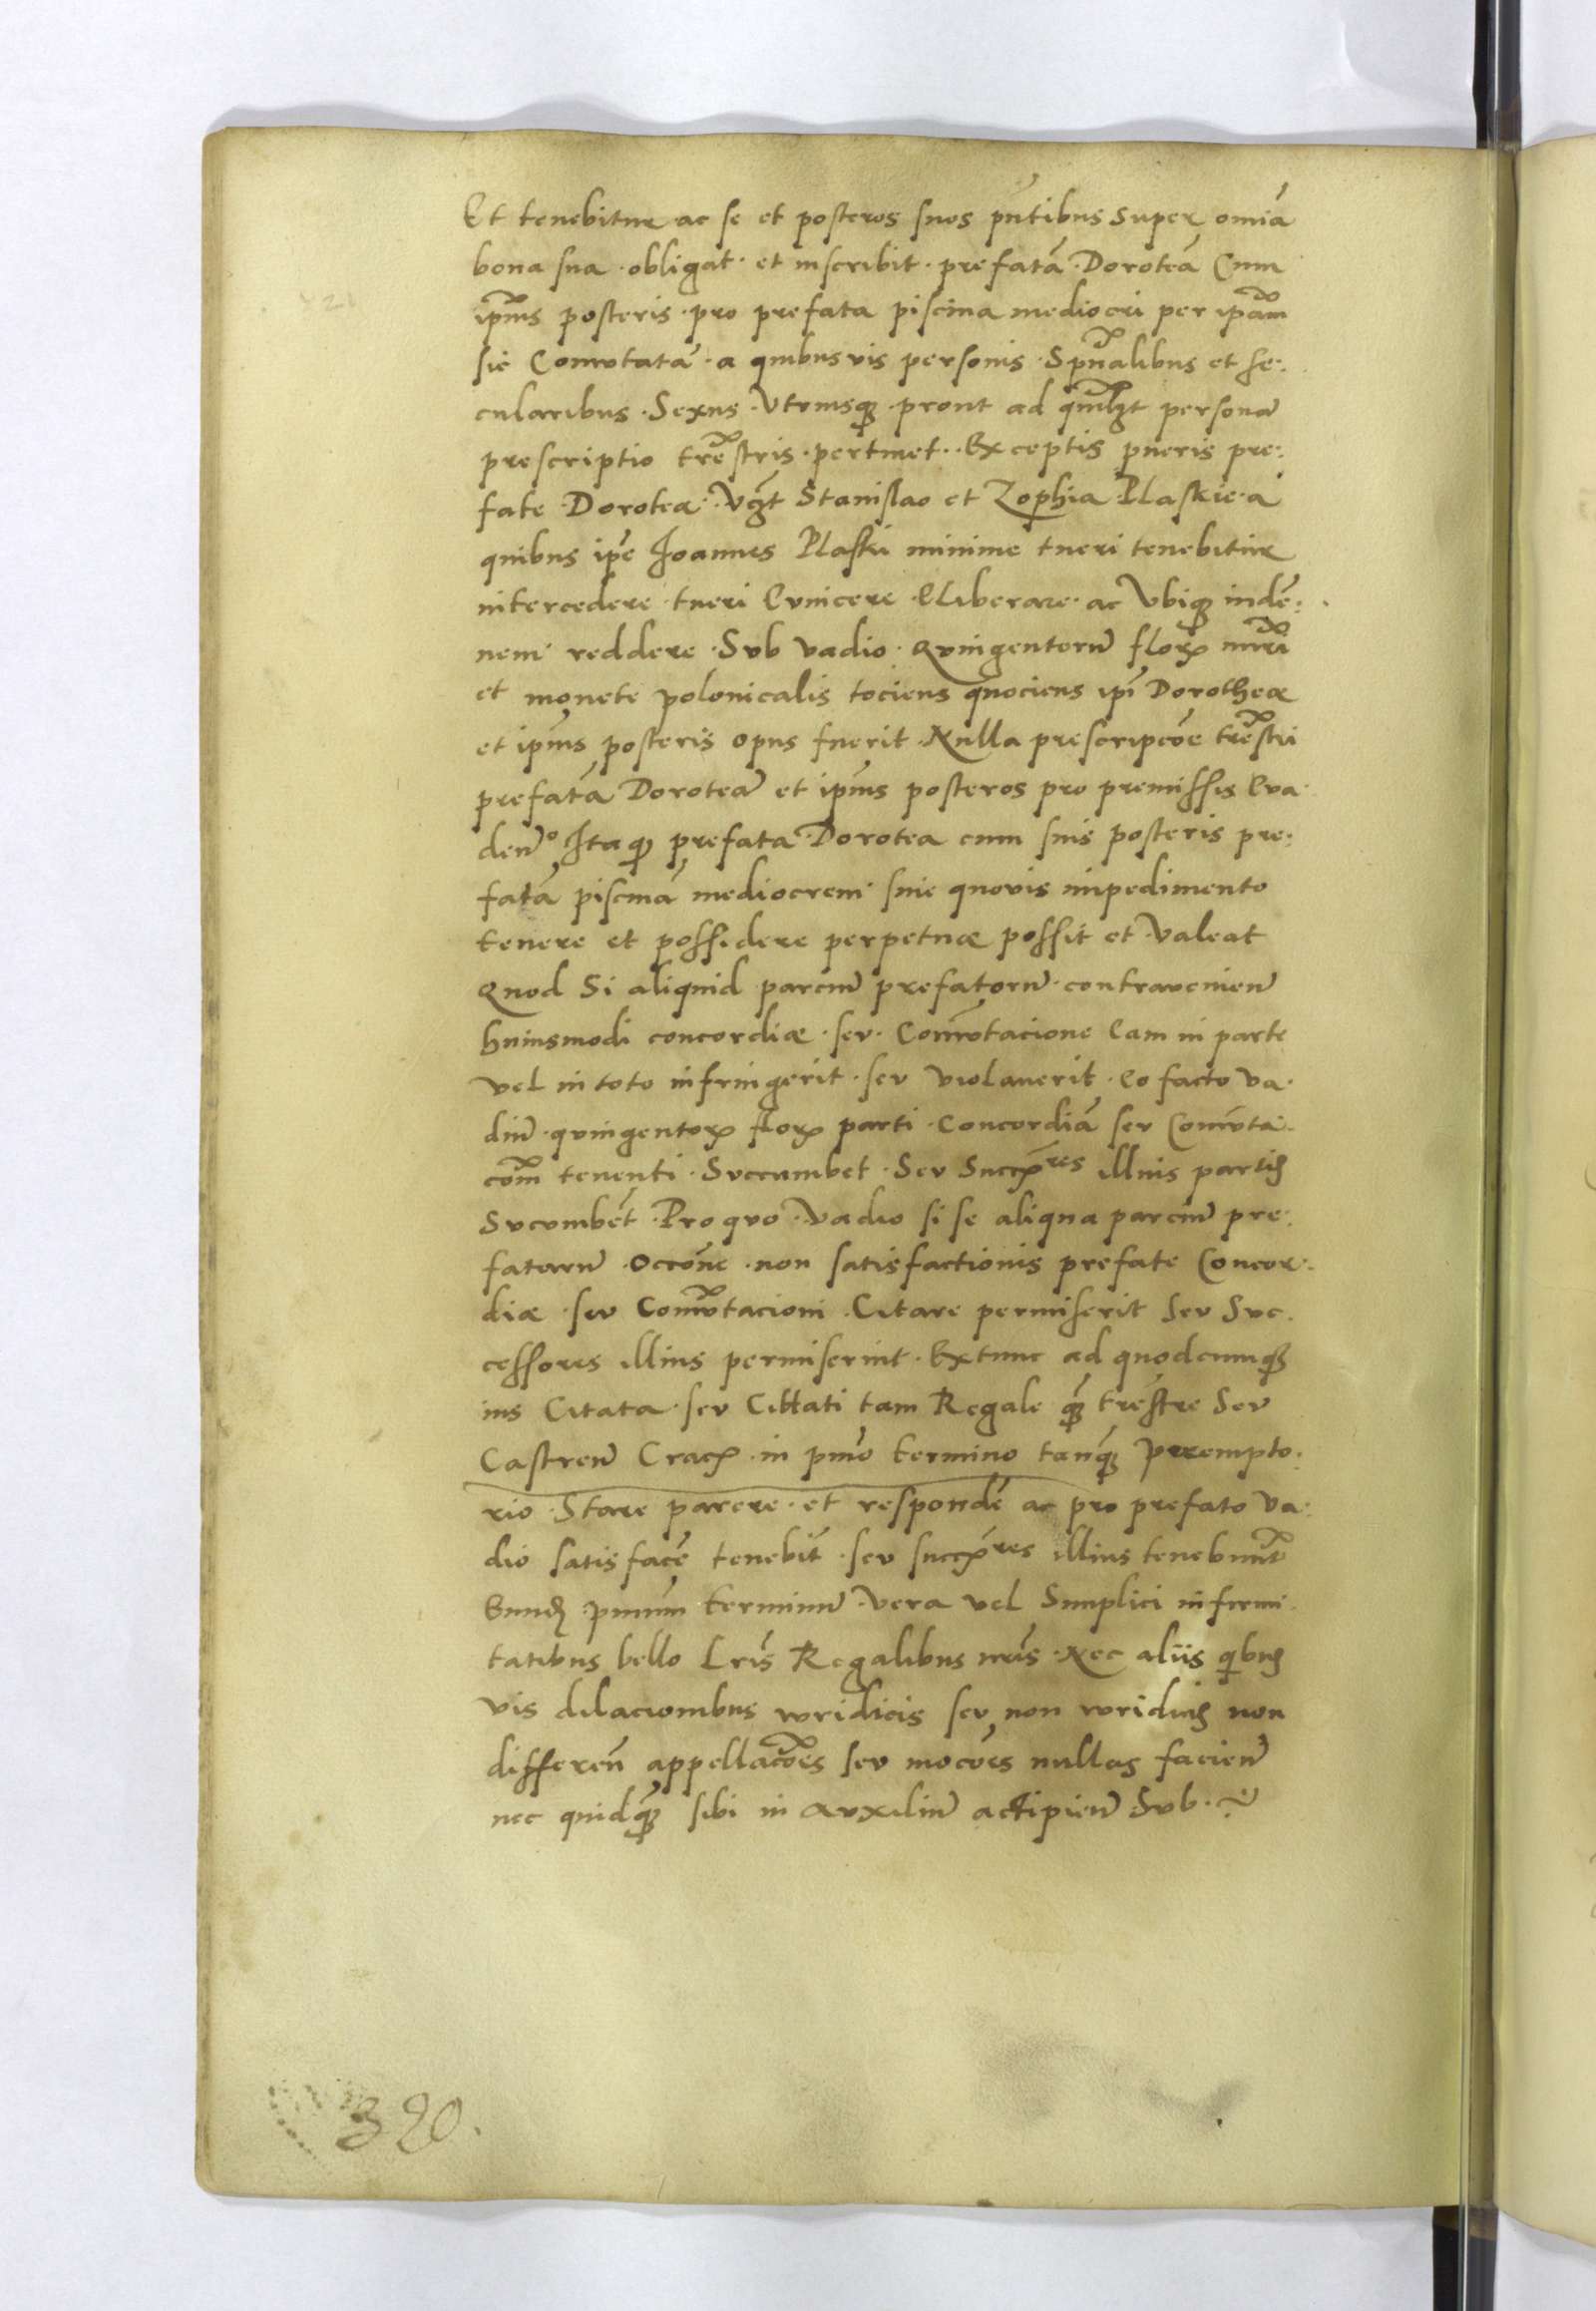 Et tenebitur ac se et posteros suos pñtibus super omiã
bona sua · obligat · et inscribit · prefatã · Doroteã Cum
ip̃ius posteris · pro prefata piscina mediocri per ip̃am
sic Comutatã · a quibusvis personis · Spũalibus et se:
cularibus · Sexus · Utriusq3 · prout ad quẽlibet personã
prescriptio trẽstris · pertinet · Exceptis pueris pre:
fate Dorotea · Vz̃t Stanislao et Zophia Plaskie · a
quibus ip̃e Joannes Plaski minime tueri tenebitur
intercedere · tueri Evincere · Eliberare · ac Ubiq3 indẽ:
nem reddere · Sub vadio · Quingentorũ floꝝ nũri
et monete polonicalis tociens quociens ip̃i Dorotheæ
et ip̃ius posteris opus fuerit Nulla prescripcõe trẽstri
prefatã Doroteã et ip̃ius posteros pro premissis Eva
deñ° Itaq3 prefata Dorotea cum suis posteris pre:
fatã piscinã mediocrem sine quovis impedimento
tenere et possidere perpetuæ possit et valeat
Quod Si aliquid parciũ prefatorũ · contravenieñ
huiusmodi concordiæ · seu · Com̃utacione Eam in parte
vel in toto infringerit · seu violaverit · Eo facto va·
diũ · quingentoꝝ floꝝ parti · Concordiã seu Comũta
cõm tenenti · Succumbet · Seu Succ̃res illius partis
Sucumbẽt · Pro quo · Vadio si se aliqua parciũ pre:
fatarũ · Occõne · non satisfactionis prefate Concor:
diæ seu Com̃utacioni Citare permiserit Seu Suc·
cessores illius permiserint · Extunc ad quodcumq3
ius Citata · seu Cittati tam Regale q̃3 trẽstre Seu
Castreñ Cracꝝ · in pmõ termino tanq̃3 Perempto:
rio · Stare parere · et respondẽ ac pro prefato va:
dio satisfacẽ tenebit̃ · seu succ̃res illius tenebunt̃
Eundẽ pmum terminũ · Vera vel Simplici infirmi
tatibus bello Lr̃is Regalibus nr̃is · Nec aliis quibus
vis dilacionibus iuridicis seu non iuridicis non
differeñ appellacões seu mocões nullas facieñ
nec quidq̃3 sibi in Auxiliũ actipieñ Sub ·
320.